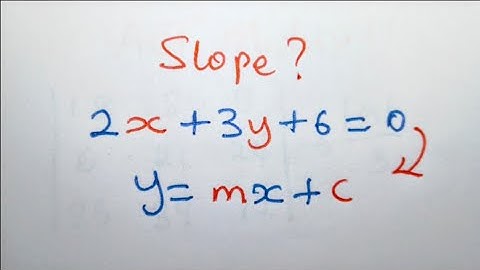 Slope?
2x+3y+6=0
y=mx+c